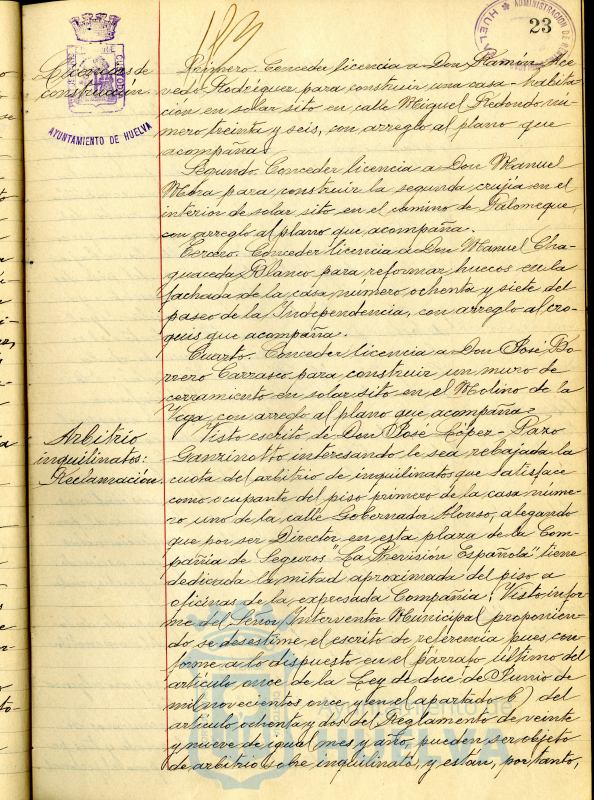 183
ADMINISTRACION DE
HUELVA
23
AYUNTAMIENTO DE HUELVA
Licencias de
construcción.
Primero. Conceder licencia a Don Ramón Ace
vedo Rodríguez para construir una casa habita
ción en solar sito en calle Miguel Redondo nú
mero treinta y seis, con arreglo al plano que
acompaña.
Segundo. Conceder licencia a Don Manuel
Mora para construir la segunda crujía en el
interior de solar sito en el camino de Palomeque,
con arreglo al plano que acompaña.
Tercero. Conceder licencia a Don Manuel Cha
guaceda Blanco para reformar huecos en la
fachada de la casa número ochenta y siete del
paseo de la Independencia, con arreglo al cro
quis que acompaña.
Cuarto. Conceder licencia a Don José Bo
rrero Carrasco para construir un muro de
cerramiento en solar sito en el Molino de la
Vega, con arreglo al plano que acompaña.
Arbitrio
inquilinatos:
Reclamación.
Visto escrito de Don José López-Pazo
Ganzinotto interesando le sea rebajada la
cuota del arbitrio de inquilinatos que satisface
como ocupante del piso primero de la casa núme
ro uno de la calle Gobernador Alonso, alegando
que por ser Director en esta plaza de la Com
pañía de Seguros "La Previsión Española" tiene
dedicada la mitad aproximada del piso a
oficinas de la expresada Compañía: Visto infor
me del Señor Interventor Municipal proponien
do se desestime el escrito de referencia pues con
forme a lo dispuesto en el párrafo último del
artículo once de la Ley de doce de Junio de
mil novecientos once y en el apartado b) del
artículo ochenta y dos del Reglamento de veinte
y nueve de igual mes y año, pueden ser objeto
de arbitrio sobre inquilinato, y están, por tanto,
Ayuntamiento de
HUELVA